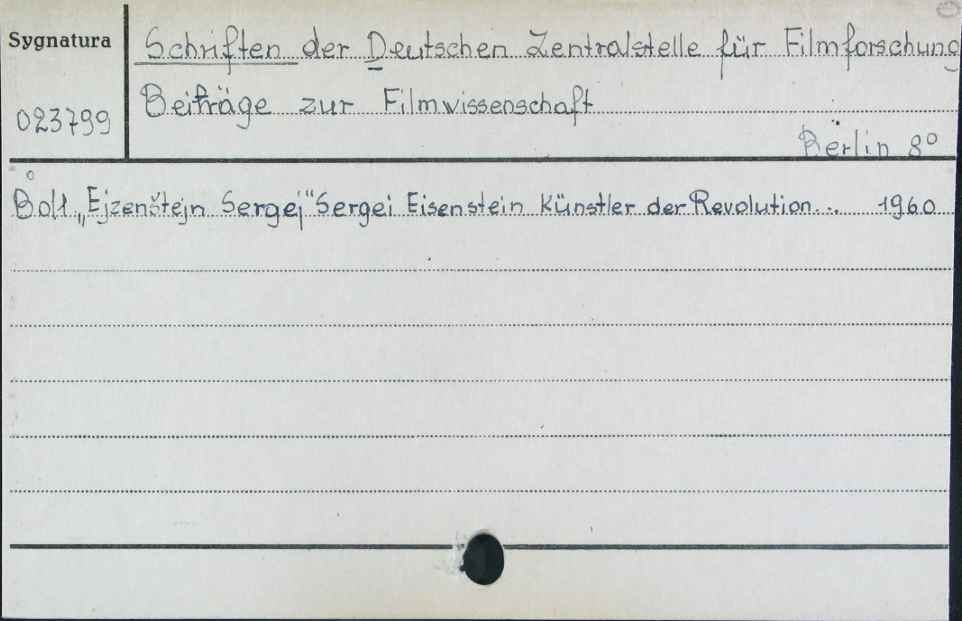 Sygnatura
Schriften der Deutschen Zentralstelle für Filmforschung
023799
Beiträge zur Filmwissenschaft
Berlin 8°
Bd 1 „Ejzenštejn Sergej" Sergei Eisenstein Künstler der Revolution... 1960